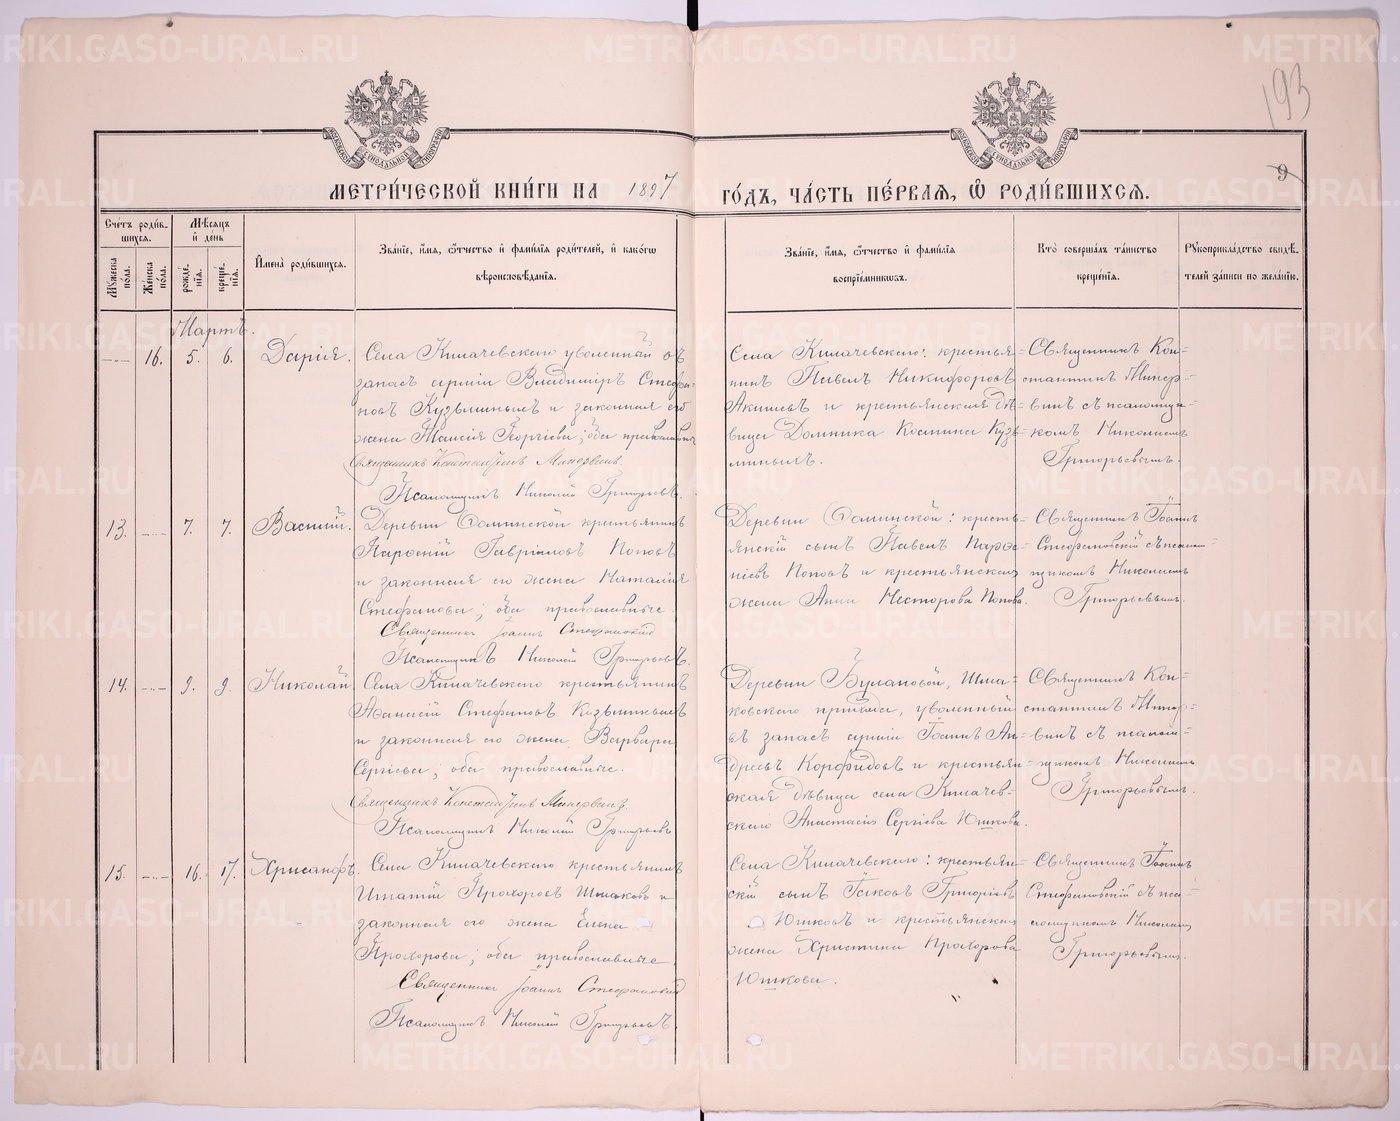 193
9
МЕТРИ́ЧЕСКОЙ КНИ́ГИ НА 1897 ГО́ДЪ, ЧА́СТЬ ПЕ́РВАѦ, Ѡ҆ РОДИ́ВШИХСѦ.
Сче́тъ роди́вшихсѧ.
Мꙋ́жеска по́ла.
Же́нска по́ла.
Мѣ́сѧцъ и҆ де́нь
рожде́нїѧ.
креще́нїѧ.
И҆мена̀ роди́вшихсѧ.
Зва́нїе, и҆́мѧ, ѻ҆́тчество и҆ фами́лїѧ роди́телей, и҆ како́гѡ
вѣроисповѣ́данїѧ.
Зва́нїе, и҆́мѧ, ѻ҆́тчество и҆ фами́лїѧ
воспрїе́мникѡвъ.
Кто̀ соверша́лъ та́инство
креще́нїѧ.
Рꙋкоприкла́дство свидѣ́телей за́писи по жела́нїю.
Мартъ.
16. 5. 6. Дарія.
Села Кипачевскаго уволенный въ
запасъ арміи Владиміръ Стефа-
новъ Кузьминыхъ и законная его
жена Таисія Георгіева; оба православн
Священникъ Константинъ Минервинъ.
Псаломщикъ Николай Григорьевъ.
Села Кипачевскаго: крестья-
нинъ Павелъ Никифоровъ
и крестьянская дѣ-
вица Домника Космина Кузь-
миныхъ.
Священникъ Кон-
стантинъ Минер-
винъ съ псаломщи-
комъ Николаемъ
Григорьевымъ.
13. 7. 7. Василій.
Деревни крестьянинъ
Гавріиловъ Поповъ
и законная его жена Наталія
Стефанова; оба православные.
Священникъ Іоаннъ Стефановскій
Псаломщикъ Николай Григорьевъ.
Деревни кресть-
янскій сынъ Павелъ
Поповъ и крестьянская
жена Анна Несторова Попова.
Священникъ Іоаннъ
Стефановскій съ псалом-
щикомъ Николаемъ
Григорьевымъ.
14. 9. 9. Николай.
Села Кипачевскаго крестьянинъ
Аѳанасій Стефановъ Кузьминыхъ
и законная его жена Варвара
Сергіева; оба православные.
Священникъ Константинъ Минервинъ.
Псаломщикъ Николай Григорьевъ
Деревни Булановой, Шма-
ковскаго прихода, уволенный
въ запасъ арміи Іоаннъ Ан-
дреевъ Корфидовъ и крестьян-
ская дѣвица села Кипачев-
скаго Анастасія Сергіева Юшкова.
Священникъ Кон-
стантинъ Минер-
винъ съ псалом-
щикомъ Николаемъ
Григорьевымъ.
15. 16. 17. Хрисанфъ.
Села Кипачевскаго крестьянинъ
Игнатій Прохоровъ Шмаковъ и
законная его жена Елена
Прохорова; оба православные.
Священникъ Іоаннъ Стефановскій
Псаломщикъ Николай Григорьевъ.
Села Кипачевскаго: крестьян-
скій сынъ Іаковъ Григоріевъ
Юшковъ и крестьянская
жена Христина Прохорова
Юшкова.
Священникъ Іоаннъ
Стефановскій съ пса-
ломщикомъ Николаемъ
Григорьевымъ.
METRIKI.GASO-URAL.RU